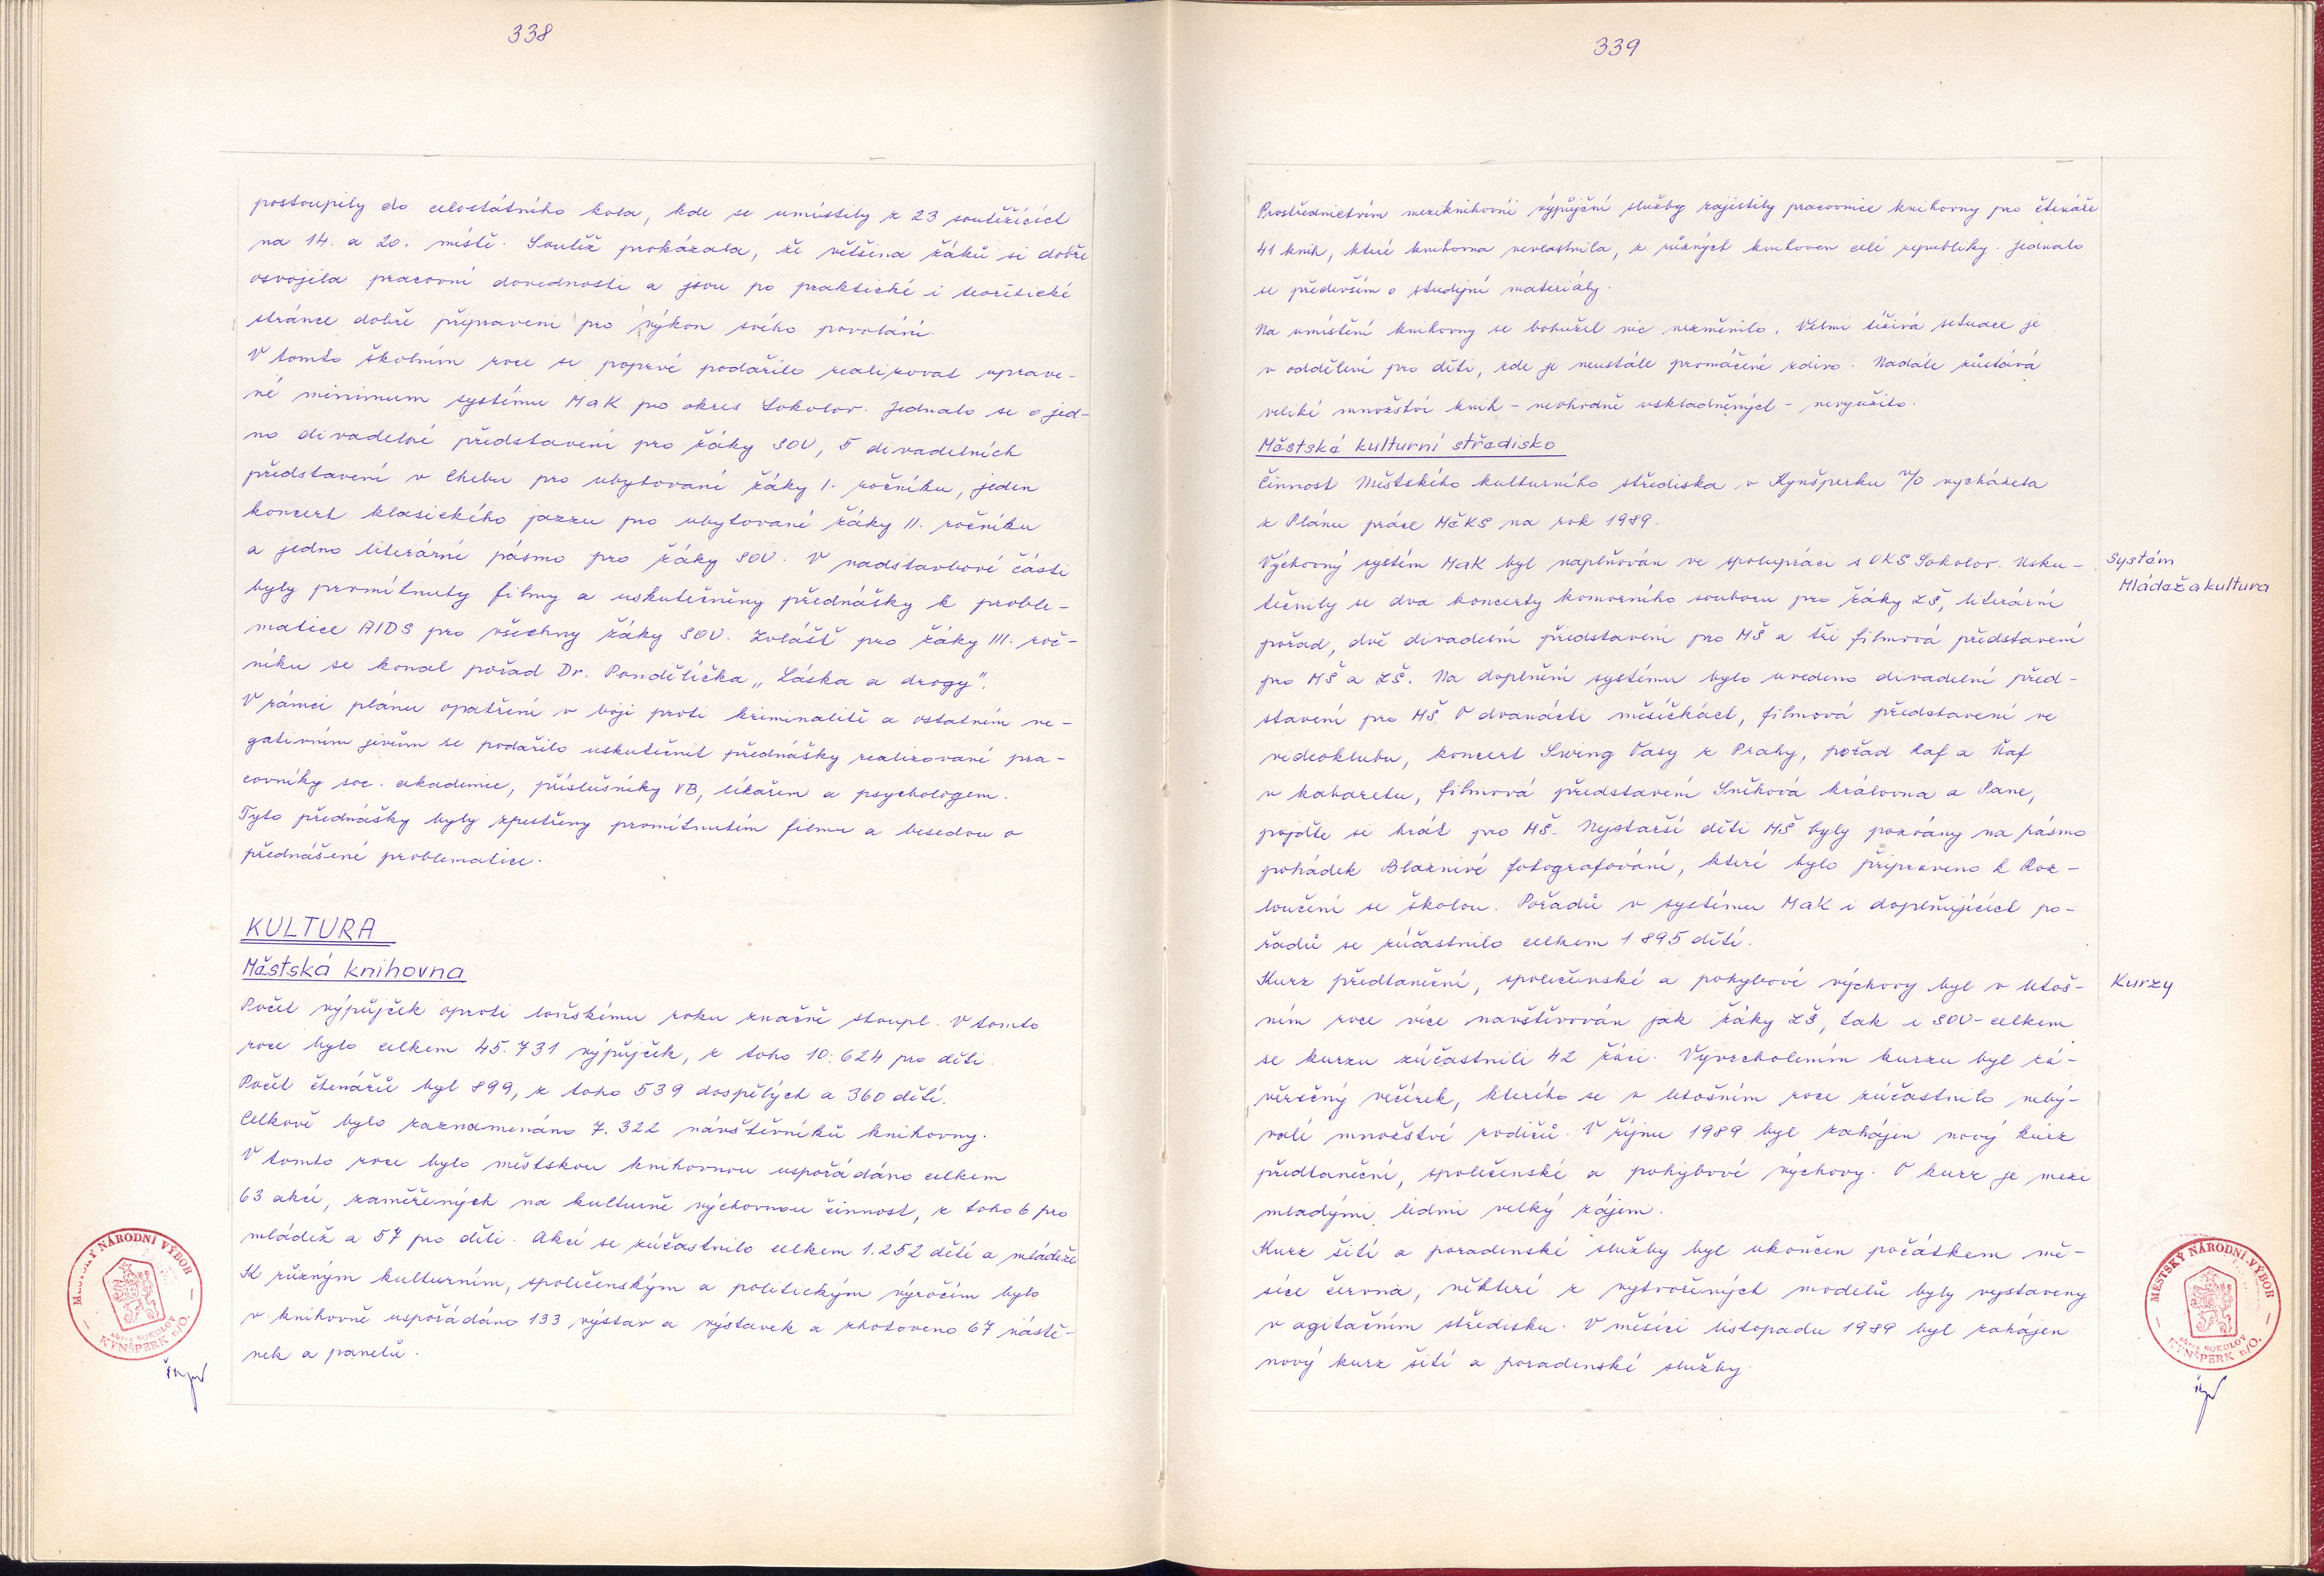 338
postoupily do celostátního kola, kde se umístily z 23 soutěžících
na 14. a 20. místě. Soutěž prokázala, že většina žáků si dobře
osvojila pracovní dovednosti a jsou po praktické i teoretické
stránce dobře připraveni pro výkon svého povolání.
V tomto školním roce se poprvé podařilo realizovat uprave-
né minimum systému MaK pro okres Sokolov. Jednalo se o jed-
no divadelní představení pro žáky SOU, 5 divadelních
představení v Chebu pro ubytované žáky I. ročníku, jeden
koncert klasického jazzu pro ubytované žáky II. ročníku
a jedno literární pásmo pro žáky SOU. V nadstavbové části
byly promítnuty filmy a uskutečněny přednášky k proble-
matice AIDS pro všechny žáky SOU. Zvláště pro žáky III. roč-
níku se konal pořad Dr. Pondělíčka „Láska a drogy".
V rámci plánu opatření v boji proti kriminalitě a ostatním ne-
gativním jevům se podařilo uskutečnit přednášky realizované pra-
covníky soc. akademie, příslušníky VB, lékařem a psychologem.
Tyto přednášky byly zpestřeny promítnutím filmu a besedou o
přednášené problematice.
KULTURA
Městská knihovna
Počet výpůjček oproti loňskému roku značně stoupl. V tomto
roce bylo celkem 45.731 výpůjček, z toho 10.624 pro děti.
Počet čtenářů byl 899, z toho 539 dospělých a 360 dětí.
Celkově bylo zaznamenáno 7.322 návštěvníků knihovny.
V tomto roce bylo městskou knihovnou uspořádáno celkem
63 akcí, zaměřených na kulturně výchovnou činnost, z toho 6 pro
mládež a 57 pro děti. Akcí se zúčastnilo celkem 1.252 dětí a mládeže
K různým kulturním, společenským a politickým výročím bylo
v knihovně uspořádáno 133 výstav a výstavek a zhotoveno 67 nástě-
nek a panelů.
MĚSTSKÝ NÁRODNÍ VÝBOR
okres SOKOLOV
KYNŠPERK n/O.
339
Prostřednictvím meziknihovní výpůjční služby zajistily pracovnice knihovny pro čtenáře
41 knih, které knihovna nevlastnila, z různých knihoven celé republiky. Jednalo
se především o studijní materiály.
Na umístění knihovny se bohužel nic nezměnilo. Velmi tíživá situace je
v oddělení pro děti, kde je neustále promáčené zdivo. Nadále zůstává
veliké množství knih - nevhodně uskladněných - nevyužito.
Městské kulturní středisko
Činnost Městského kulturního střediska v Kynšperku n/O vycházela
z Plánu práce MěKS na rok 1989.
Výchovný systém MaK byl naplňován ve spolupráci s OKS Sokolov. Usku-
tečnily se dva koncerty komorního souboru pro žáky ZŠ, literární
pořad, dvě divadelní představení pro MŠ a tři filmová představení
pro MŠ a ZŠ. Na doplnění systému bylo uvedeno divadelní před-
stavení pro MŠ O dvanácti měsíčkách, filmová představení ve
videoklubu, koncert Swing Vasy z Prahy, pořad Raf a Ňaf
v kabaretu, filmová představení Sněhová královna a Pane,
pojďte si hrát pro MŠ. Nejstarší děti MŠ byly pozvány na pásmo
pohádek Bláznivé fotografování, které bylo připraveno k Roz-
loučení se školou. Pořadů v systému MaK i doplňujících po-
řadů se zúčastnilo celkem 1.895 dětí.
Kurz předtaneční, společenské a pohybové výchovy byl v letoš-
ním roce více navštěvován jak žáky ZŠ, tak i SOU - celkem
se kurzu zúčastnili 42 žáci. Vyvrcholením kurzu byl zá-
věrečný večírek, kterého se v letošním roce zúčastnilo neby-
valé množství rodičů. V říjnu 1989 byl zahájen nový kurz
předtaneční, společenské a pohybové výchovy. O kurz je mezi
mladými lidmi velký zájem.
Kurz šití a poradenské služby byl ukončen počátkem mě-
síce června, některé z vytvořených modelů byly vystaveny
v agitačním středisku. V měsíci listopadu 1989 byl zahájen
nový kurz šití a poradenské služby.
Systém
Mládež a kultura
Kurzy
MĚSTSKÝ NÁRODNÍ VÝBOR
okres SOKOLOV
KYNŠPERK n/O.